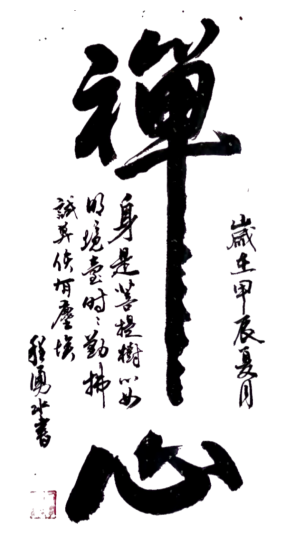 禪心
歲在甲辰夏月
身是菩提樹心如
明境臺時々勤拂
莫使有塵埃
勇 書